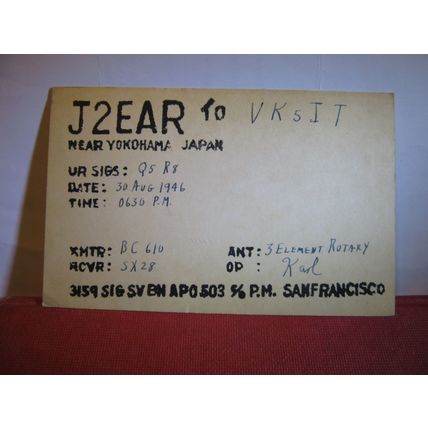 J2EAR TO VK5IT
NEAR YOKOHAMA JAPAN
UR SIGS: Q5 R8
DATE: 30 AUG 1946
TIME: 0630 P.M.
XMTR: BC 610 ANT: 3 ELEMENT ROTARY
RCVR: SX28 OP : Karl
3159 SIG SV BN APO 503 c/o P.M. SANFRANCISCO